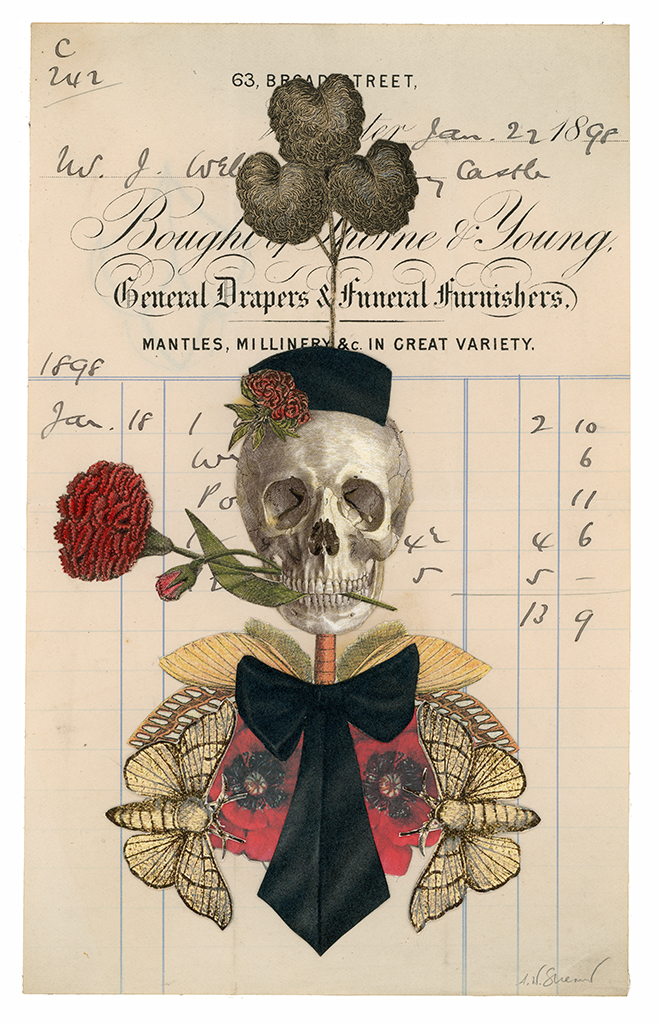 C
242
63, BROAD STREET,
Jan. 22 1898
W. J. Castle
Bought of Thorne & Young,
General Drapers & Funeral Furnishers,
MANTLES, MILLINERY &c. IN GREAT VARIETY.
1898
Jan. 18 1 2 10
6
11
4 6
5 5 –
13 9